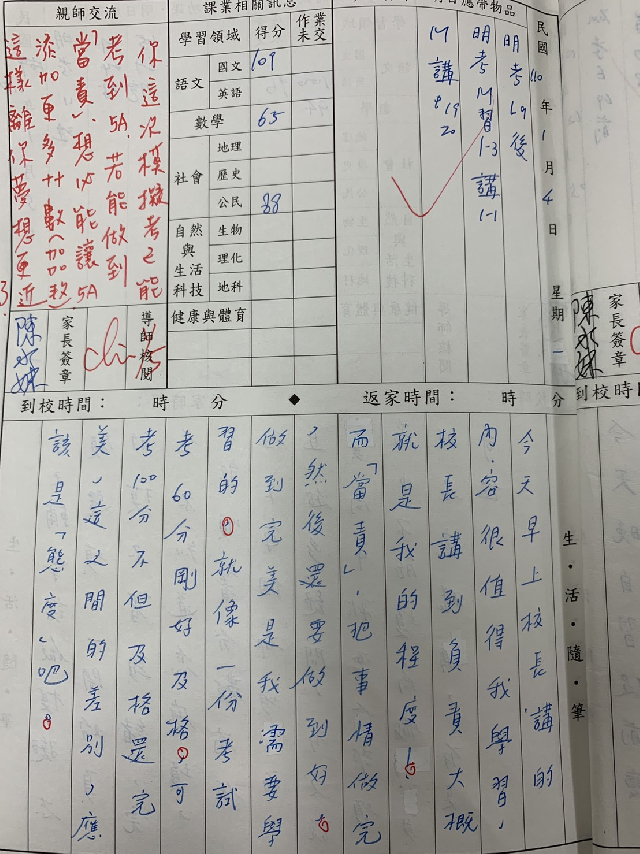 親師交流
你這次模擬考已能
考到5A,若能做到
「當責」,想必能讓5A
添加更多廿數(加數
這樣離你夢想更近
導師核閱
家長簽章
陳
課業相關訊息
學習領域 得分 作業未交
語文 國文 109
英語
數學 65
社會 地理
歷史
公民 88
自然與生活科技 生物
理化
地科
健康與體育
應帶物品
民國110年1月4日 星期一
明考L9後
明考M習1-3講1-1
M講t19
20
家長簽章
到校時間: 時 分 ◆ 返家時間: 時 分
到校時間
生·活·隨·筆
今天早上校長講的
內容很值得我學習,
校長講到負責大概
就是我的程度,
而「當責」,把事情做完
,然後還要做到好,
做到完美是我需要學
習的。就像一份考試
考60分剛好及格,可
考100分不但及格還完
美,這之間的差別,應
該是「態度」吧。